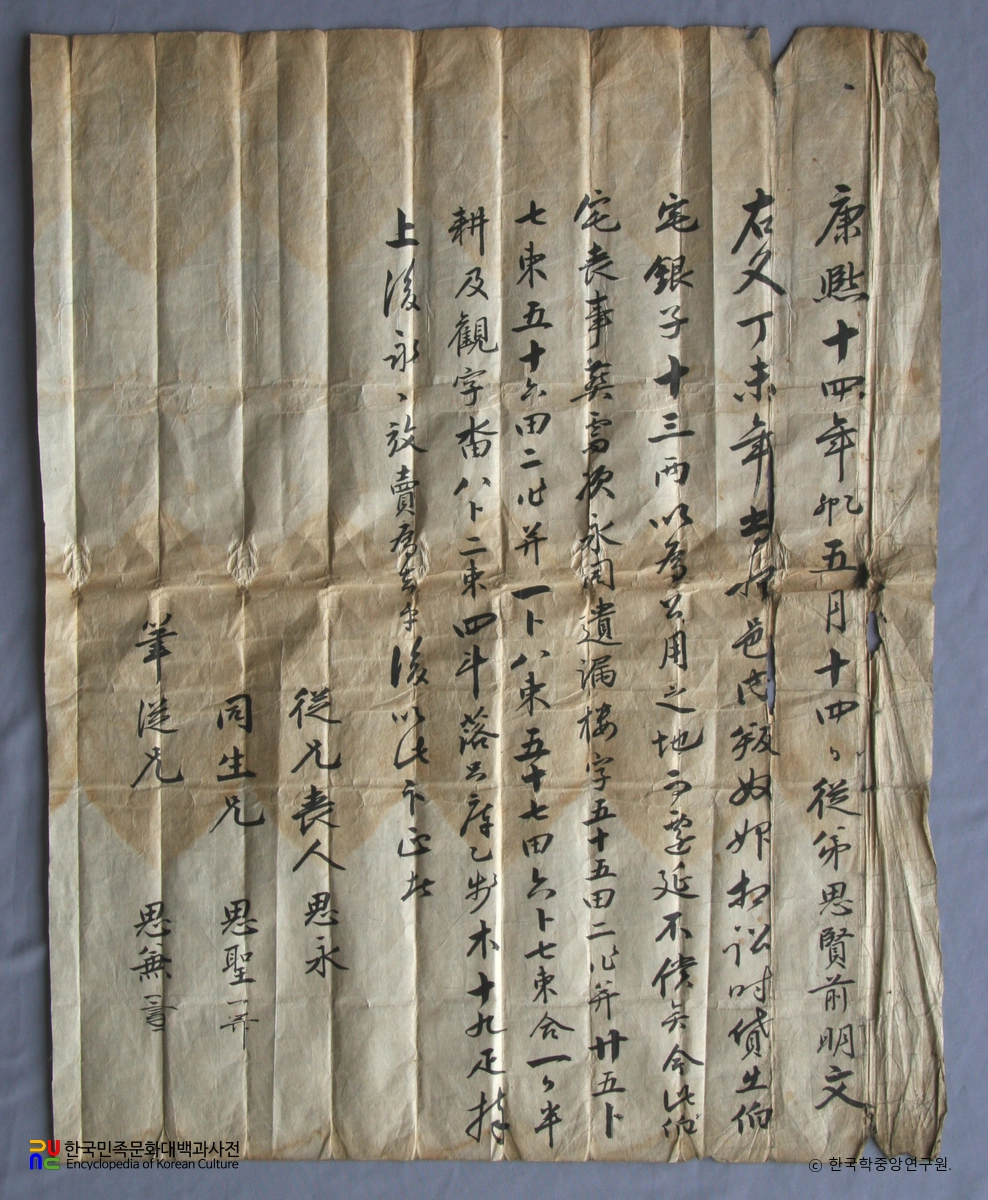 康熙十四年乙卯五月十四日從弟思賢前明文
右文丁未年 邑內叛奴婢相訟時貸出伯
宅銀子十三兩以爲公用之地而遷延不償矣今此伯
宅喪事葬需次永同遺漏樓字五十五田二作幷廿五卜
七束五十六田二作幷一卜八束五十七田六卜七束合一日半
耕及觀字畓八卜二束四斗落只庫乙 木十九疋捧
上後永永放賣爲去乎後以此卞正者
從兄喪人 思永
同生兄 思聖
筆從兄 思兼
한국민족문화대백과사전
Encyclopedia of Korean Culture
© 한국학중앙연구원.